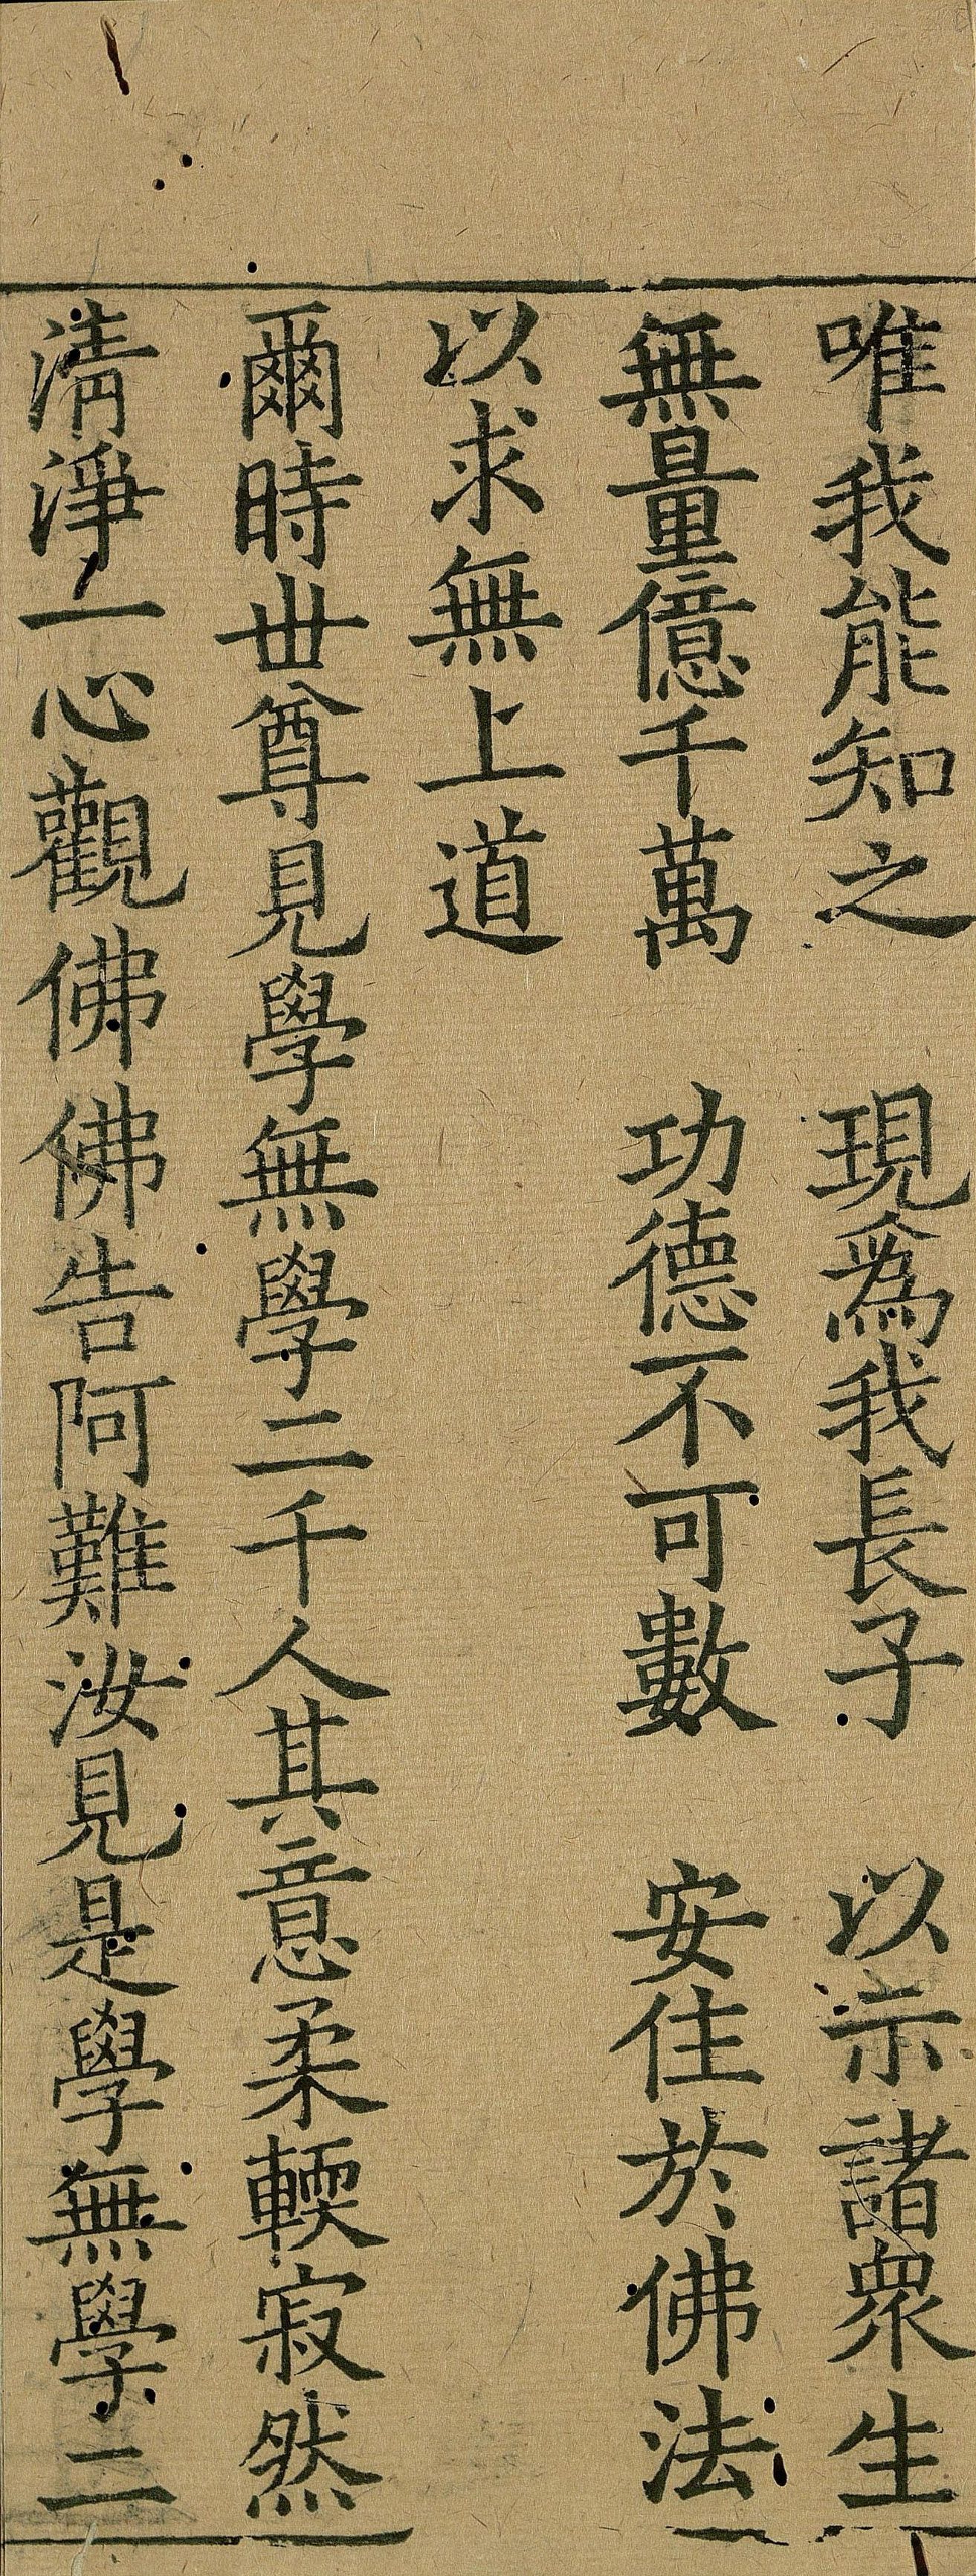 唯我能知之　現爲我長子　以示諸衆生
無量億千萬　功德不可數　安住於佛法
以求無上道
爾時丗尊見學無學二千人其意柔輭寂然
淸淨一心觀佛佛告阿難汝見是學無學二